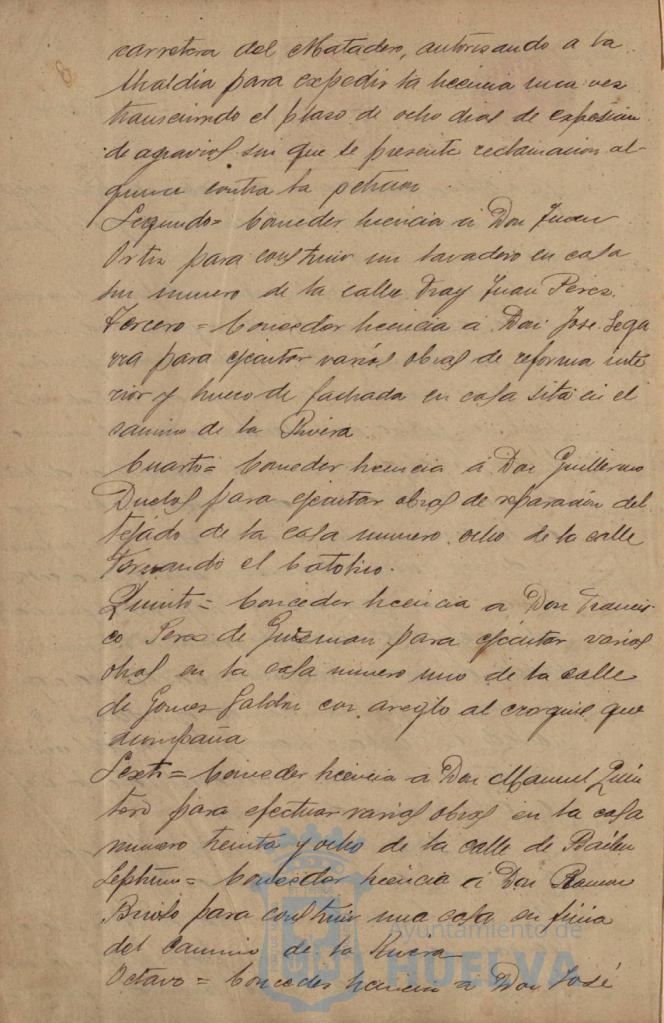 carretera del Matadero, autorizando a la
Alcaldia para expedir la licencia una vez
transcurrido el plazo de ocho dias de exposicion
de agravios sin que se presente reclamacion al-
guna contra la peticion.
Segundo= Conceder licencia a Don Juan
Ortiz para construir un lavadero en casa
sin numero de la calle Fray Juan Perez.
Tercero = Conceder licencia a Don José Sega
rra para ejecutar varias obras de reforma inte
rior y hueco de fachada en casa sita en el
camino de la Rivera
Cuarto = Conceder licencia a Don Guillermo
Duclos para ejecutar obras de reparación del
tejado de la casa numero ocho de la calle
Fernando el Catolico.
Quinto = Conceder licencia a Don Francis-
co Perez de Guzman para ejecutar varias
obras en la casa numero uno de la calle
de Gomez Jaldon con areglo al croquis que
acompaña
Sexto = Conceder licencia a Don Manuel Quin
tero para efectuar varias obras en la casa
numero treinta y ocho de la calle de Bailen
Septimo = Conceder licencia a Don Ramon
para construir una casa en finca
del Camino de la Rivera
Octavo = Conceder licencia a Don José
Ayuntamiento de
HUELVA